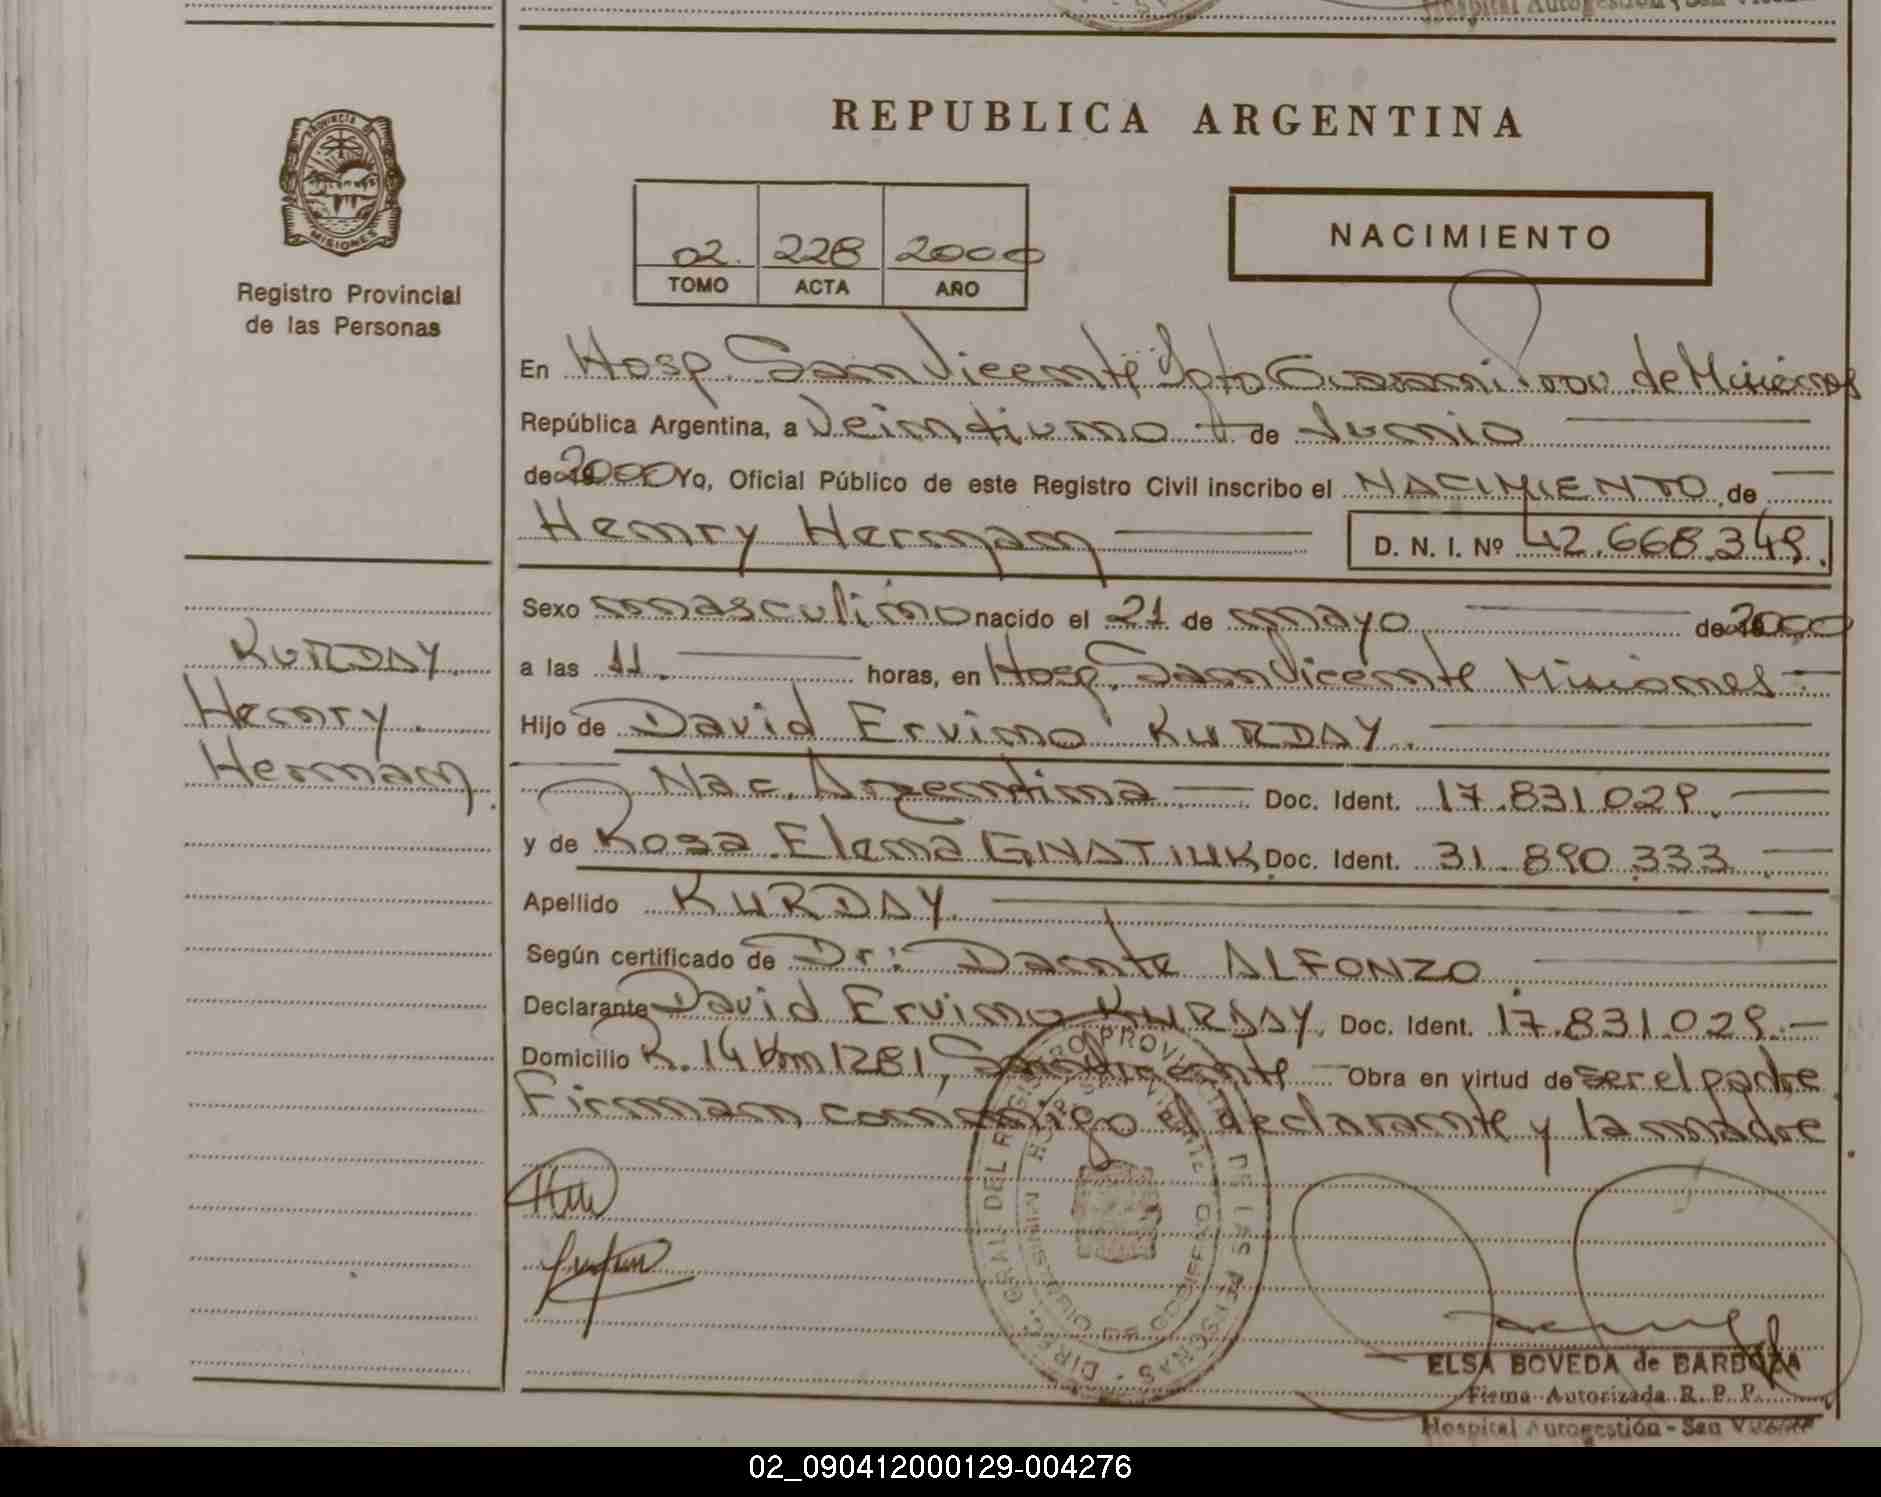 Hospital Autogestión - San
REPUBLICA ARGENTINA
PROVINCIA DE
MISIONES
Registro Provincial
de las Personas
02. 228 2000
TOMO ACTA AÑO
NACIMIENTO
En Hosp. San Vicente Dpto Guarani Prov. de Misiones
República Argentina, a Veintiuno de Junio
de 2000 Yo, Oficial Público de este Registro Civil inscribo el NACIMIENTO de
Henry Hernan D. N. I. Nº 42.668.349.
Sexo masculino nacido el 21 de mayo de 2000
a las 11. horas, en Hosp. San Vicente Misiones
Hijo de David Ervino KURDAY.
Nac. Argentina Doc. Ident. 17.831.029.
y de Rosa Elena GNATIUK Doc. Ident. 31.890.333
Apellido KURDAY.
Según certificado de Dr: Dante ALFONZO
Declarante David Ervino KURDAY. Doc. Ident. 17.831.029.
Domicilio R. 14 Km 1281, San Vicente Obra en virtud de ser el padre
Firman conmigo el declarante y la madre.
KURDAY.
Henry
Hernan.
DIREC. GRAL. DEL REGISTRO PROVINCIAL DE LAS PERSONAS
ELSA BOVEDA de BARBOZA
Firma Autorizada R. P. P.
Hospital Autogestión - San Vicente
02_090412000129-004276